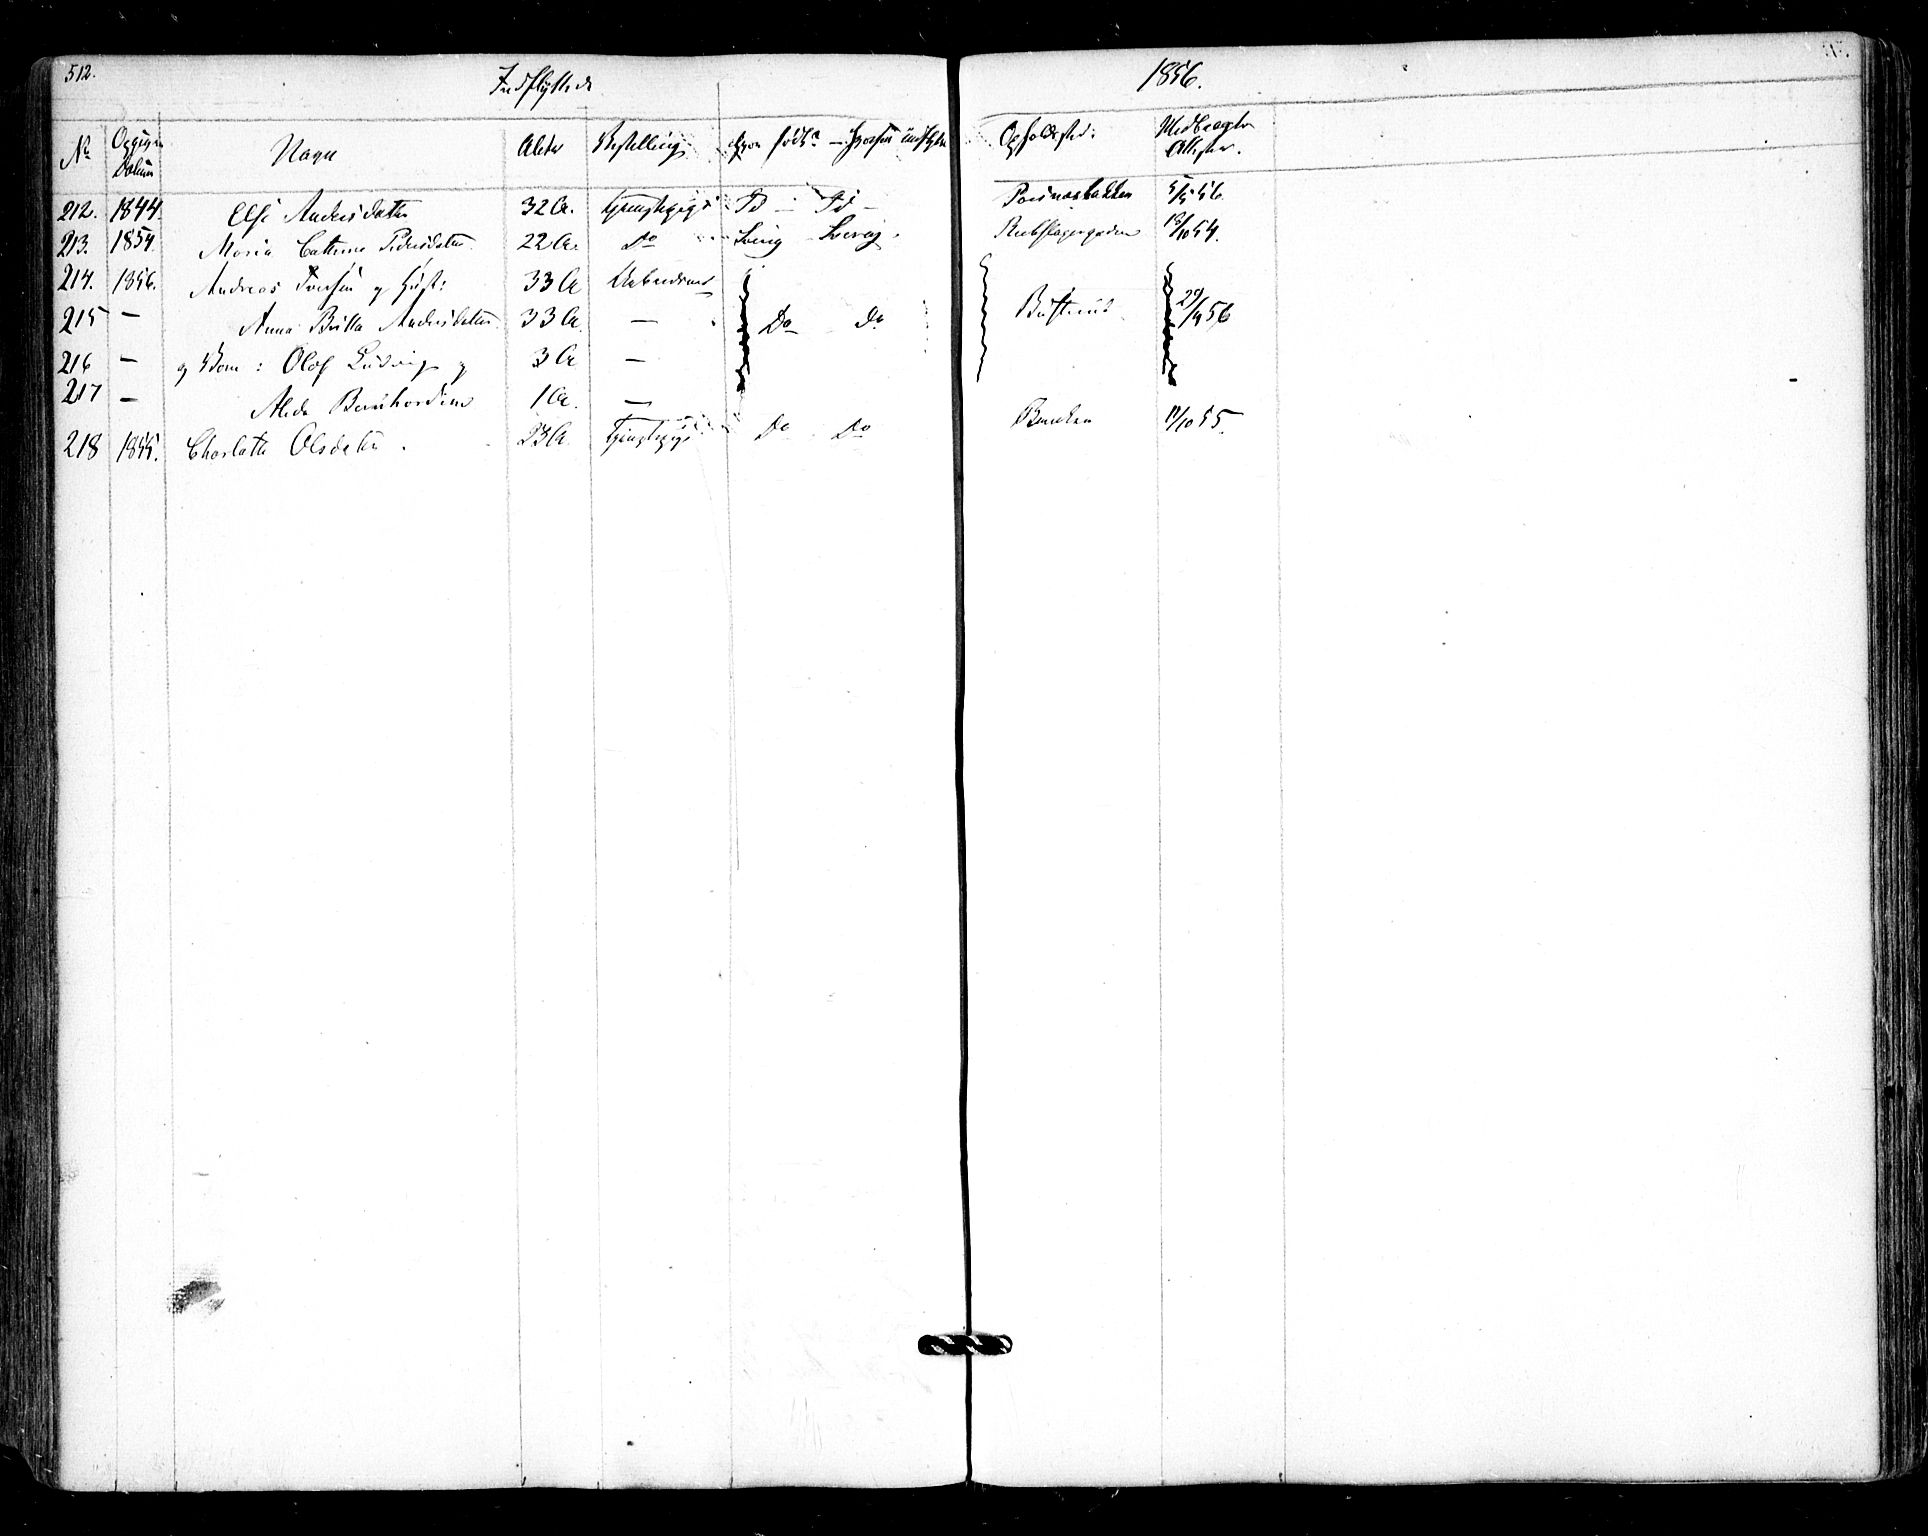 512. Indflyttede 1856.
No Opgiven Datum Navn Alder Bestilling hvor født? — hvorfra indflyttet Opholdsted: Medbragte Attester.
212. 1844. Else Andersdatter 32 A. Tjenstepige Do Do 5/5 56.
213. 1854. Maria Cathrine Pedersdatter 22 A. Do Sverig Sverig. Rebslagergaden 18/10 54.
214. 1856. Andreas Iversen og Hust: 33 A Arbeidsmd
215 — Anna Britta Andersdatter 33 A. — Do Do 29/4 56
216 — og Børn: Olof Ludvig og 3 A —
217 — Alida Bernhardine 1 A. —
218 1855. Charlotte Olsdatter. 23 A Tjenstepige Do Do 11/10 55.